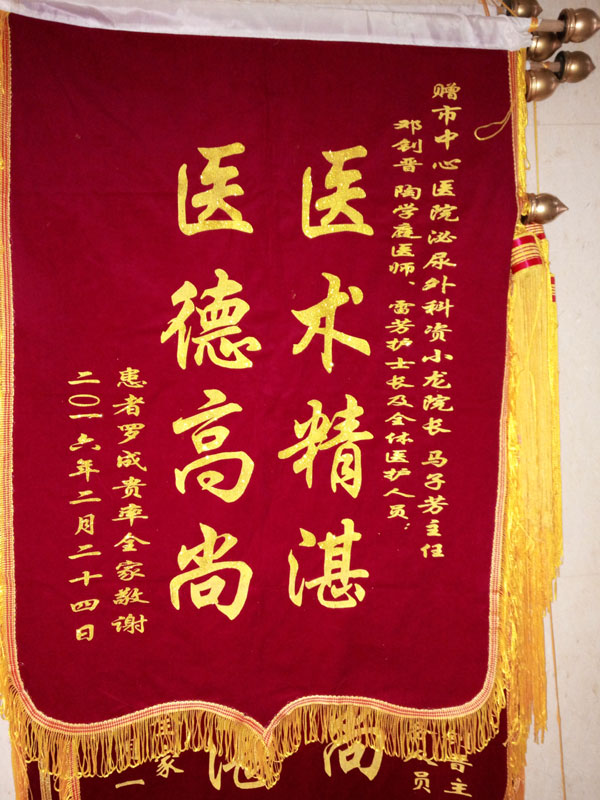 赠市中心医院泌尿外科资小龙院长 马子芳主任
邓创晋 陶学庭医师、雷芳护士长及全体医护人员：
医术精湛
医德高尚
患者罗成贵率全家敬谢
二〇一六年二月二十四日